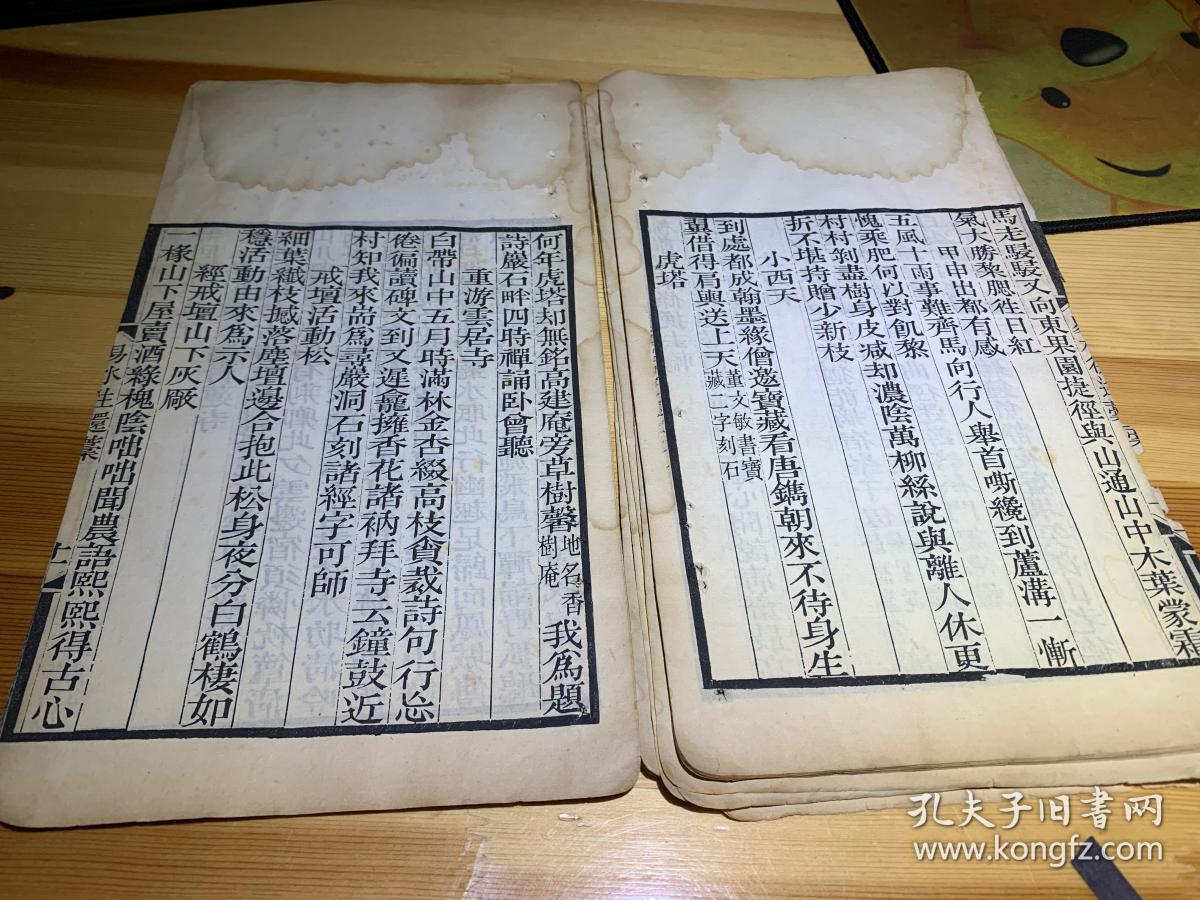 馬走駸駸又向東果園捷徑與山通山中木葉蒙霜
氣大勝黎爬社日紅
甲申出都有感
五風十雨事難齊馬向行人舉首嘶纔到蘆溝一慚
愧乘肥何以對飢黎
村村剝盡樹身皮减却濃陰萬柳絲說與離人休更
折不堪持贈少新枝
小西天
到處都成翰墨緣僧邀寶藏看唐鐫朝來不待身生
翼借得肩輿送上天董文敏書寶藏二字刻石
虎塔
何年虎塔却無銘高建庵旁草樹馨地名香樹庵我為題
詩巖石畔四時禪誦卧會聽
重游雲居寺
白帶山中五月時滿林金杏綴高枝貪裁詩句行忩
倦徧讀碑文到又遲龕擁香花諸衲拜寺云鐘鼓近
村知我來耑為尋巖洞石刻諸經字可師
戒壇活動松
細葉纖枝撼落塵壇邊合抱此松身夜分白鶴棲如
穩活動由來為示人
經戒壇山下灰廠
一椽山下屋賣酒綠槐陰咄咄聞農語熙熙得古心
孔夫子旧書网
www.kongfz.com